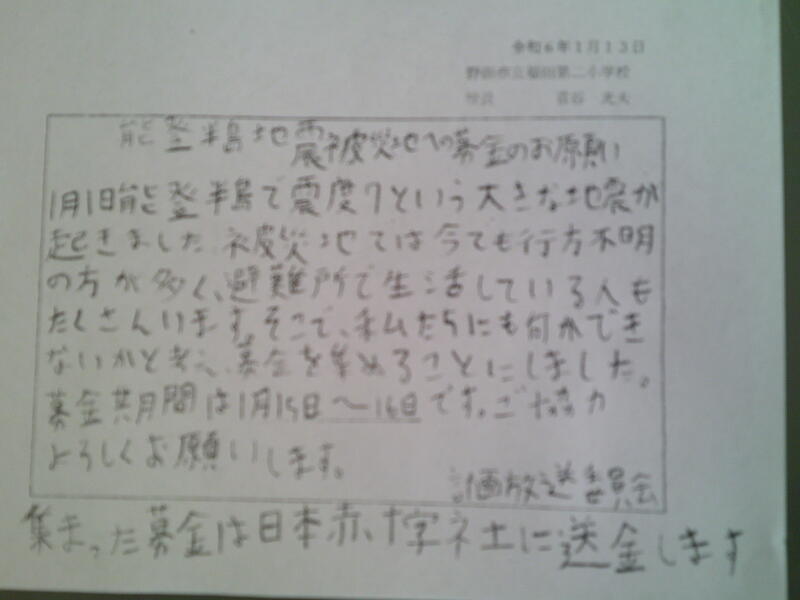 令和6年1月13日
野田市立福田第二小学校
校長
能登半島地震被災地への募金のお願い
1月1日能登半島で震度7という大きな地震が
起きました。被災地では今でも行方不明
の方が多く、避難所で生活している人も
たくさんいます。そこで、私たちにも何かでき
ないかと考え、募金を集めることにしました。
募金期間は1月15日〜16日です。ご協力
よろしくお願いします。
計画放送委員会
集まった募金は日本赤十字社に送金します